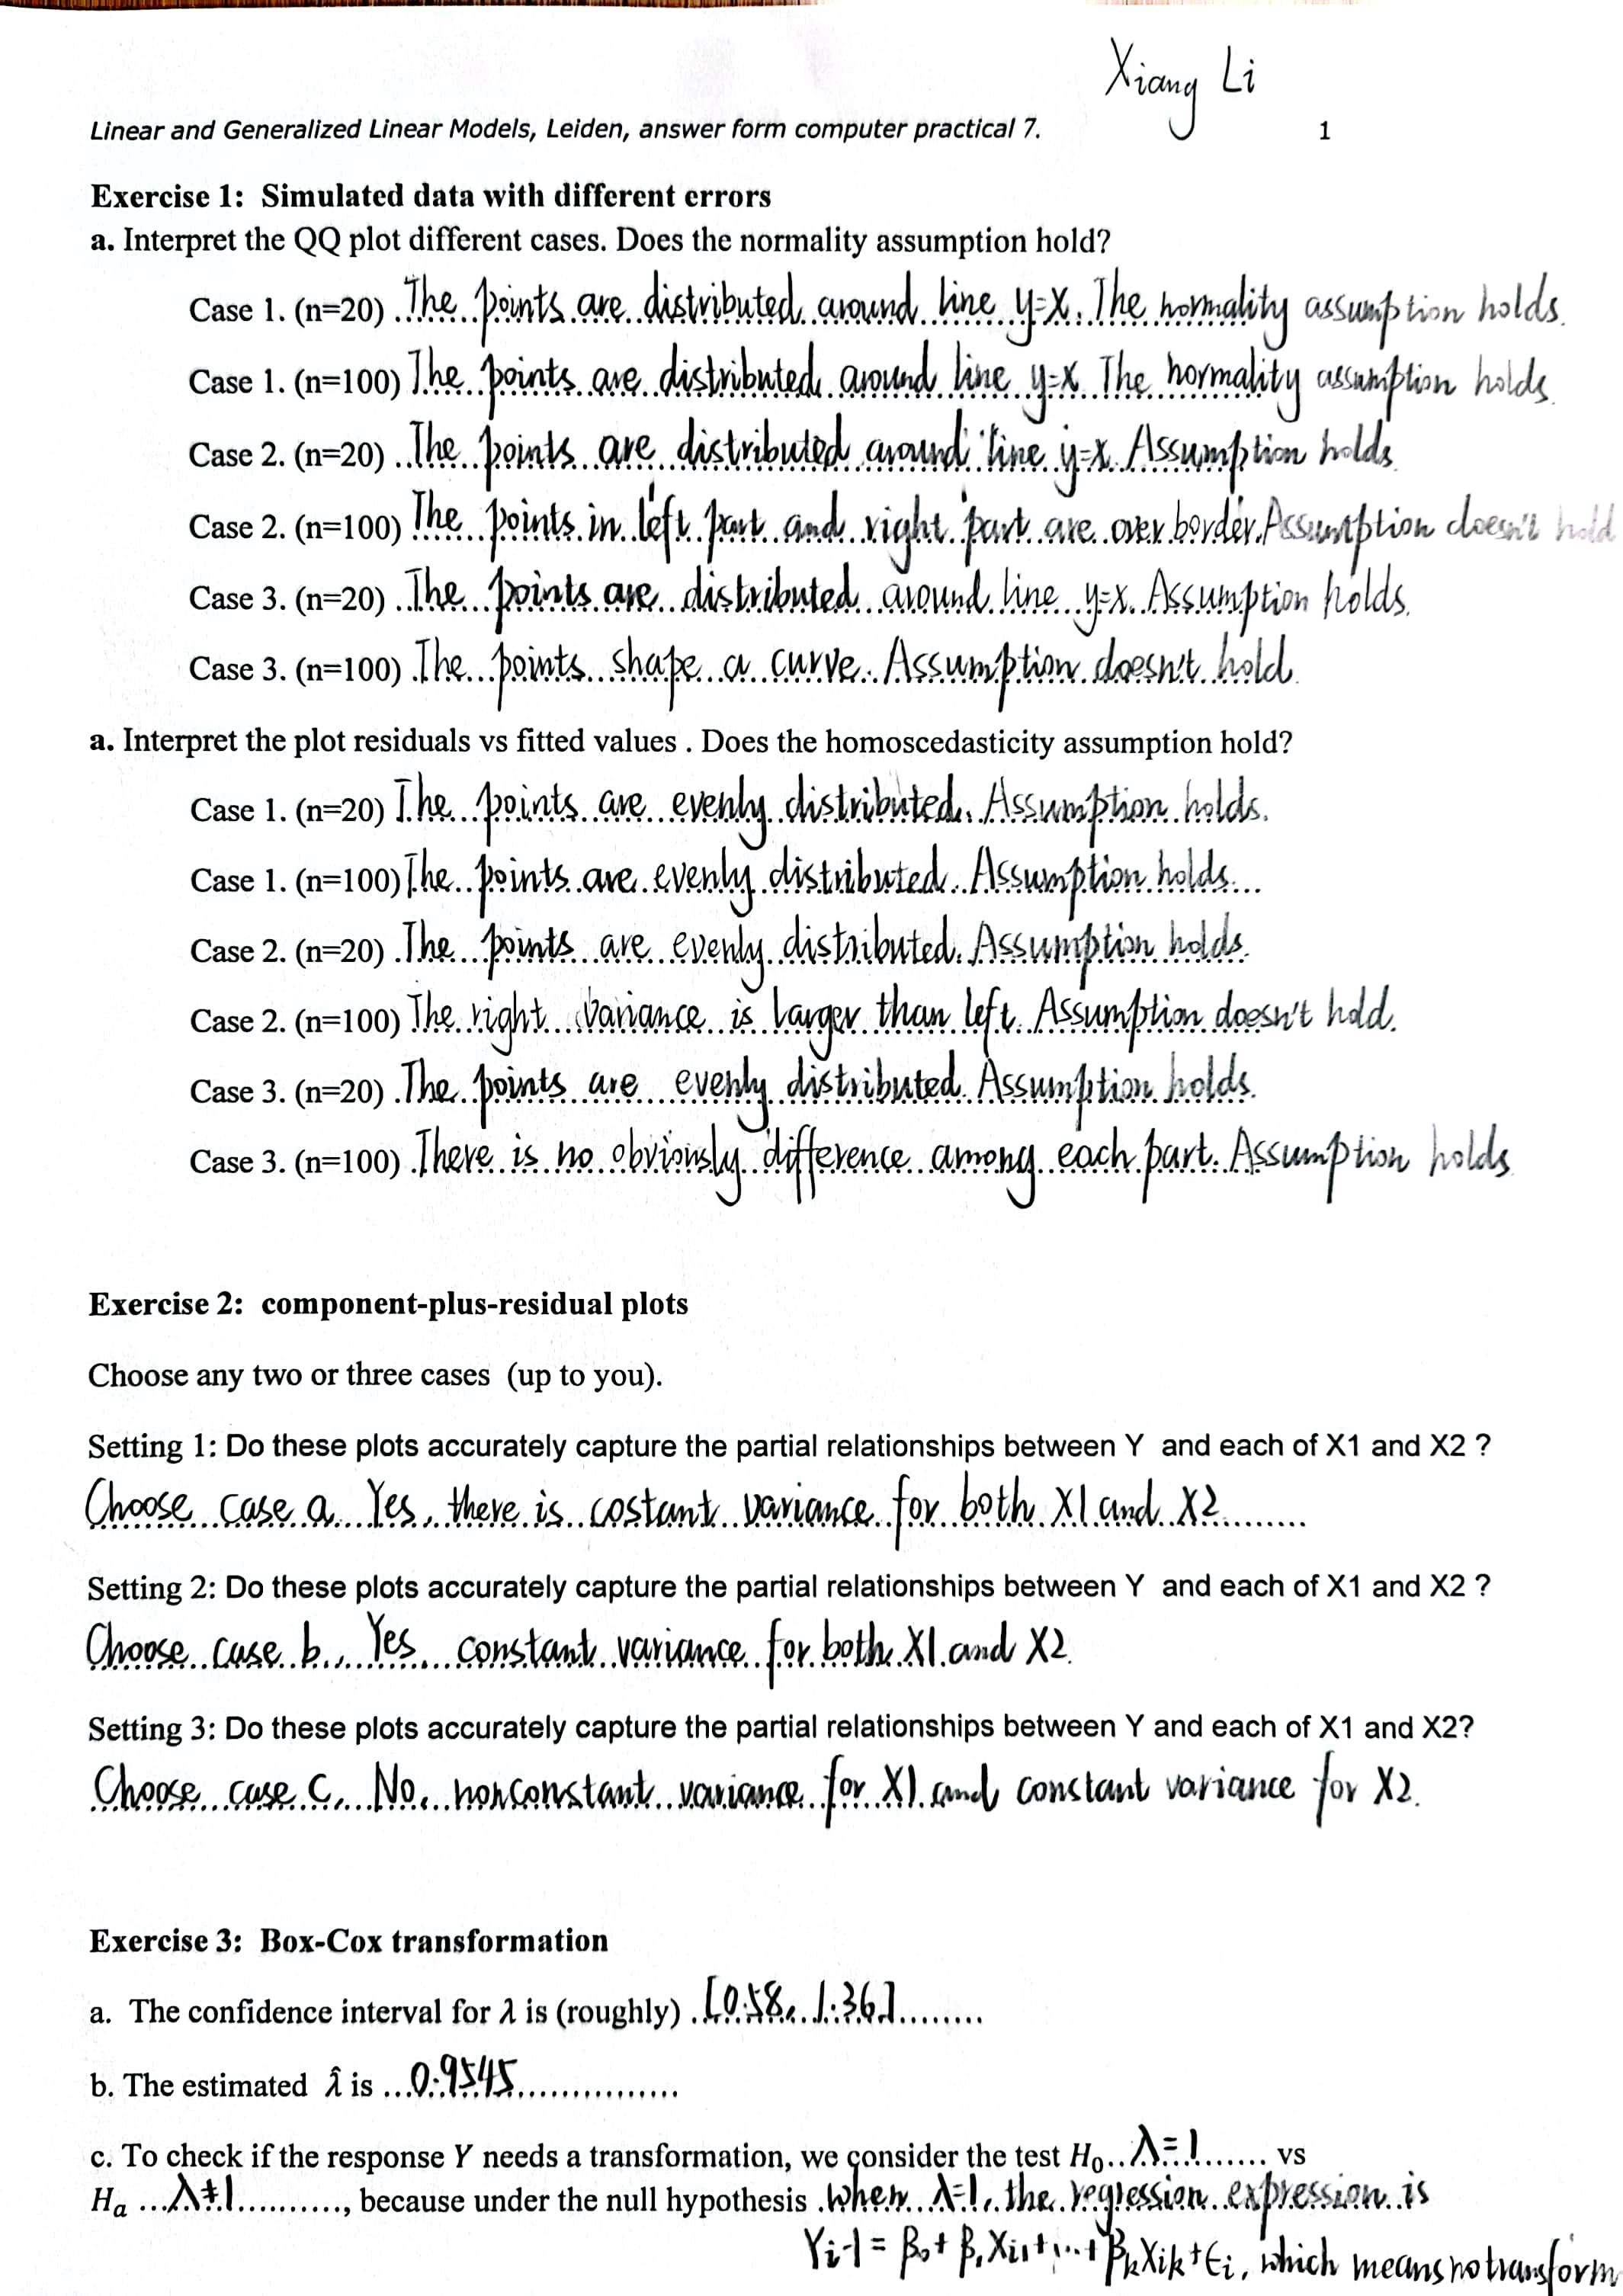 Xiang Li
Linear and Generalized Linear Models, Leiden, answer form computer practical 7. 1
Exercise 1: Simulated data with different errors
a. Interpret the QQ plot different cases. Does the normality assumption hold?
Case 1. (n=20) The points are distributed around line y=x. The normality assumption holds.
Case 1. (n=100) The points are distributed around line y=x. The normality assumption holds.
Case 2. (n=20) The points are distributed around line y=x. Assumption holds.
Case 2. (n=100) The points in left part and right part are over border. Assumption doesn't hold
Case 3. (n=20) The points are distributed around line y=x. Assumption holds.
Case 3. (n=100) The points shape a curve. Assumption doesn't hold.
a. Interpret the plot residuals vs fitted values . Does the homoscedasticity assumption hold?
Case 1. (n=20) The points are evenly distributed. Assumption holds.
Case 1. (n=100) The points are evenly distributed. Assumption holds...
Case 2. (n=20) The points are evenly distributed. Assumption holds.
Case 2. (n=100) The right variance is larger than left. Assumption doesn't hold.
Case 3. (n=20) The points are evenly distributed. Assumption holds.
Case 3. (n=100) There is no obviously difference among each part. Assumption holds
Exercise 2: component-plus-residual plots
Choose any two or three cases (up to you).
Setting 1: Do these plots accurately capture the partial relationships between Y and each of X1 and X2 ?
Choose case a. Yes, there is costant variance for both X1 and X2.........
Setting 2: Do these plots accurately capture the partial relationships between Y and each of X1 and X2 ?
Choose case b, Yes. constant variance for both X1 and X2.
Setting 3: Do these plots accurately capture the partial relationships between Y and each of X1 and X2?
Choose case C, No. nonconstant variance for X1 and constant variance for X2.
Exercise 3: Box-Cox transformation
a. The confidence interval for λ is (roughly) [0.58, 1.36]........
b. The estimated λ̂ is ...0.9545................
c. To check if the response Y needs a transformation, we consider the test H₀..λ=1........ vs
Hₐ ...λ≠1..........., because under the null hypothesis .when λ=1, the regression expression is
Yi-1 = β₀ + β₁Xi1+...+βkXik+ϵi, which means no transform